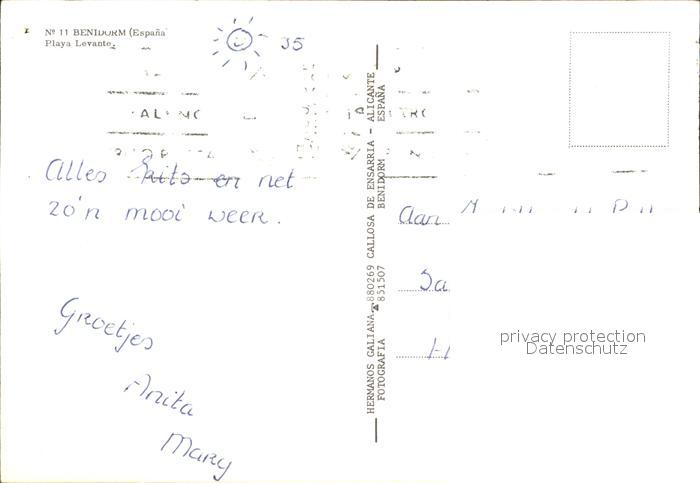 Nº 11 BENIDORM (España
Playa Levante.
35
Alles kits en net
zo'n mooi weer.
Groetjes
Anita
Mary
HERMANOS GALIANA. 880269 CALLOSA DE ENSARRIA - ALICANTE
FOTOGRAFIA 851507 BENIDORM ESPAÑA
Aan
privacy protection
Datenschutz